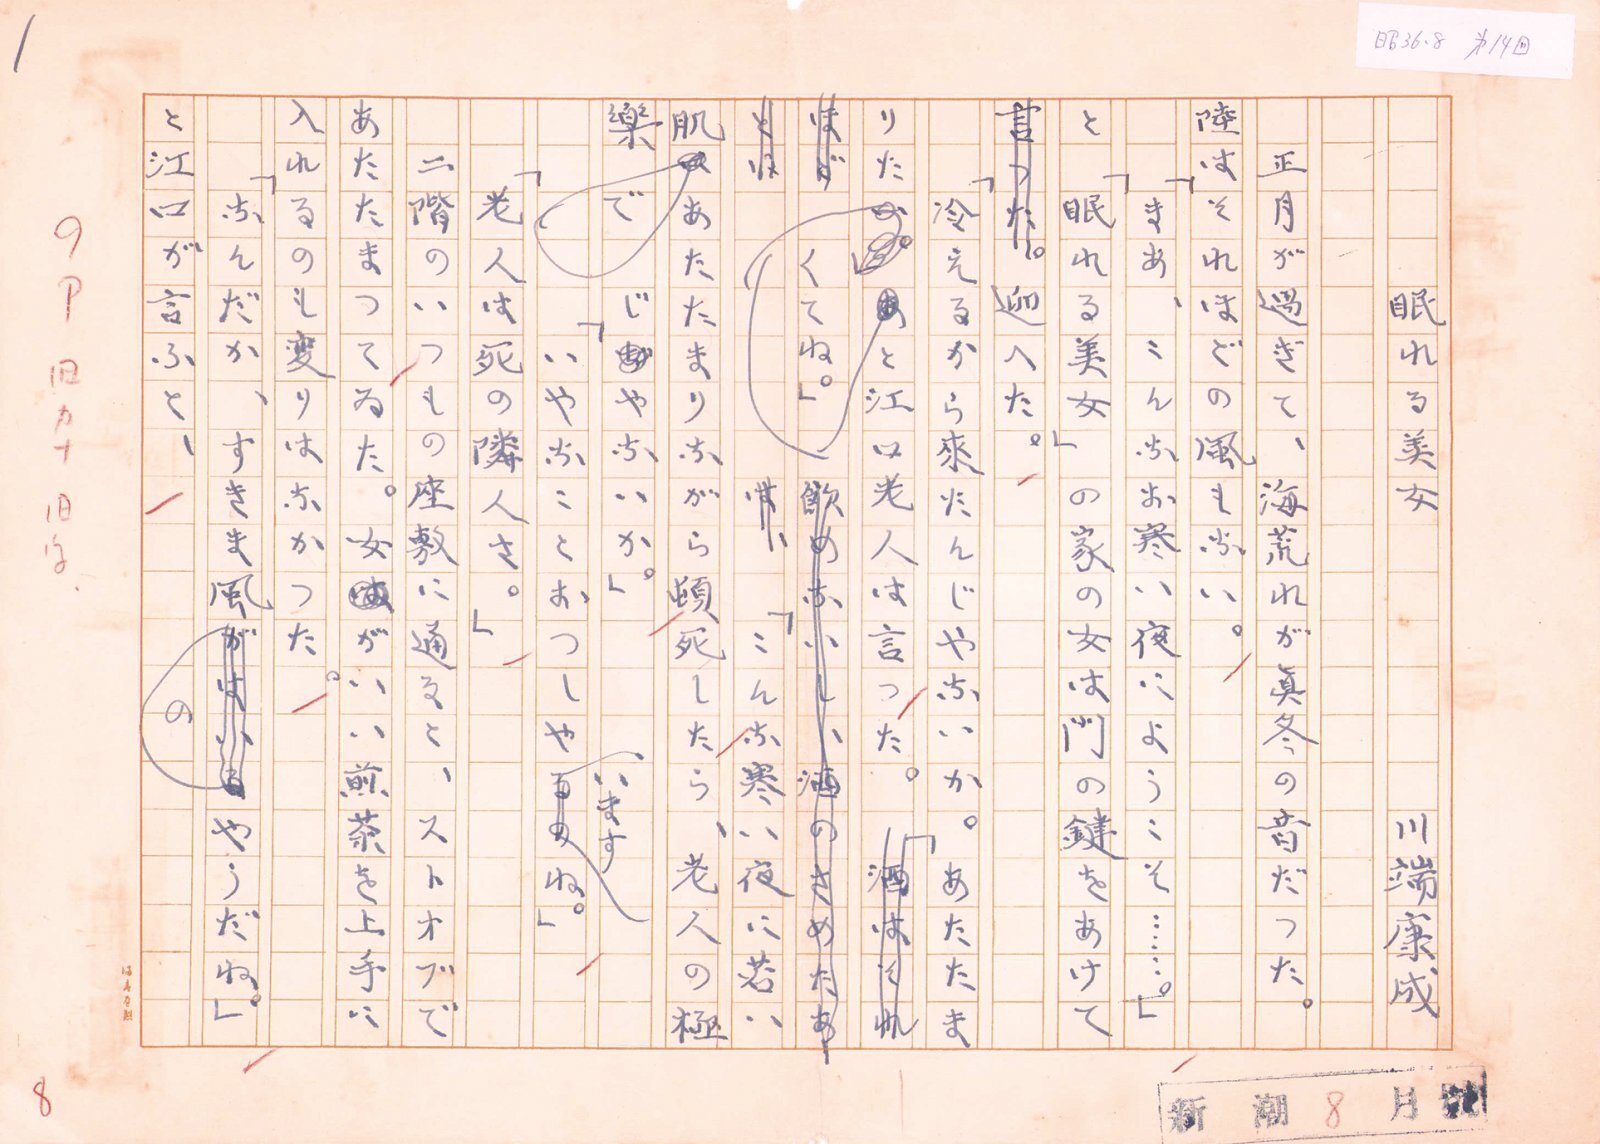 1
昭36.8 第14回
眠れる美女 川端康成
正月が過ぎて、海荒れが真冬の音だつた。
陸はそれほどの風もない。
「まあ、こんなお寒い夜にようこそ……。」
と「眠れる美女」の家の女は門の鍵をあけて
言つた。迎へた。
「冷えるから来たんじやないか。あたたま
りたと江口老人は言つた。「酒はそれ
ほど くてね。」飲めないしい酒のさめたあ
とは は、「こんな寒い夜に若い
肌であたたまりながら頓死したら、老人の極
楽で じやないか。」
「いやなことおつしやるのね。」
います
「老人は死の隣人さ。」
二階のいつもの座敷に通ると、ストオブで
あたたまつてゐた。女がいい煎茶を上手に
入れるのも変りはなかつた。
「なんだか、すきま風がはいるやうだね。」
の
と江口が言ふと、
9P 旧カナ旧字
8
新潮8月号